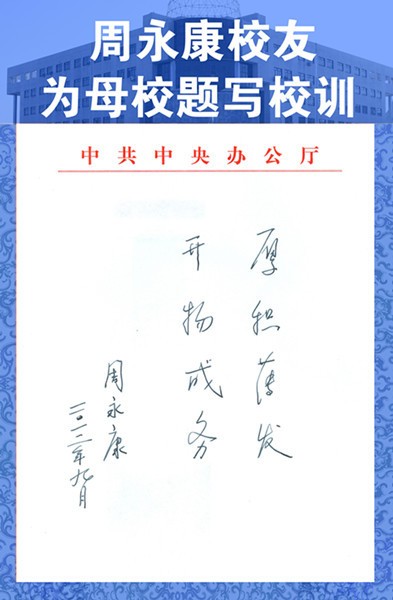 周永康校友
为母校题写校训
中共中央办公厅
厚积薄发
开物成务
周永康
二〇一二年九月